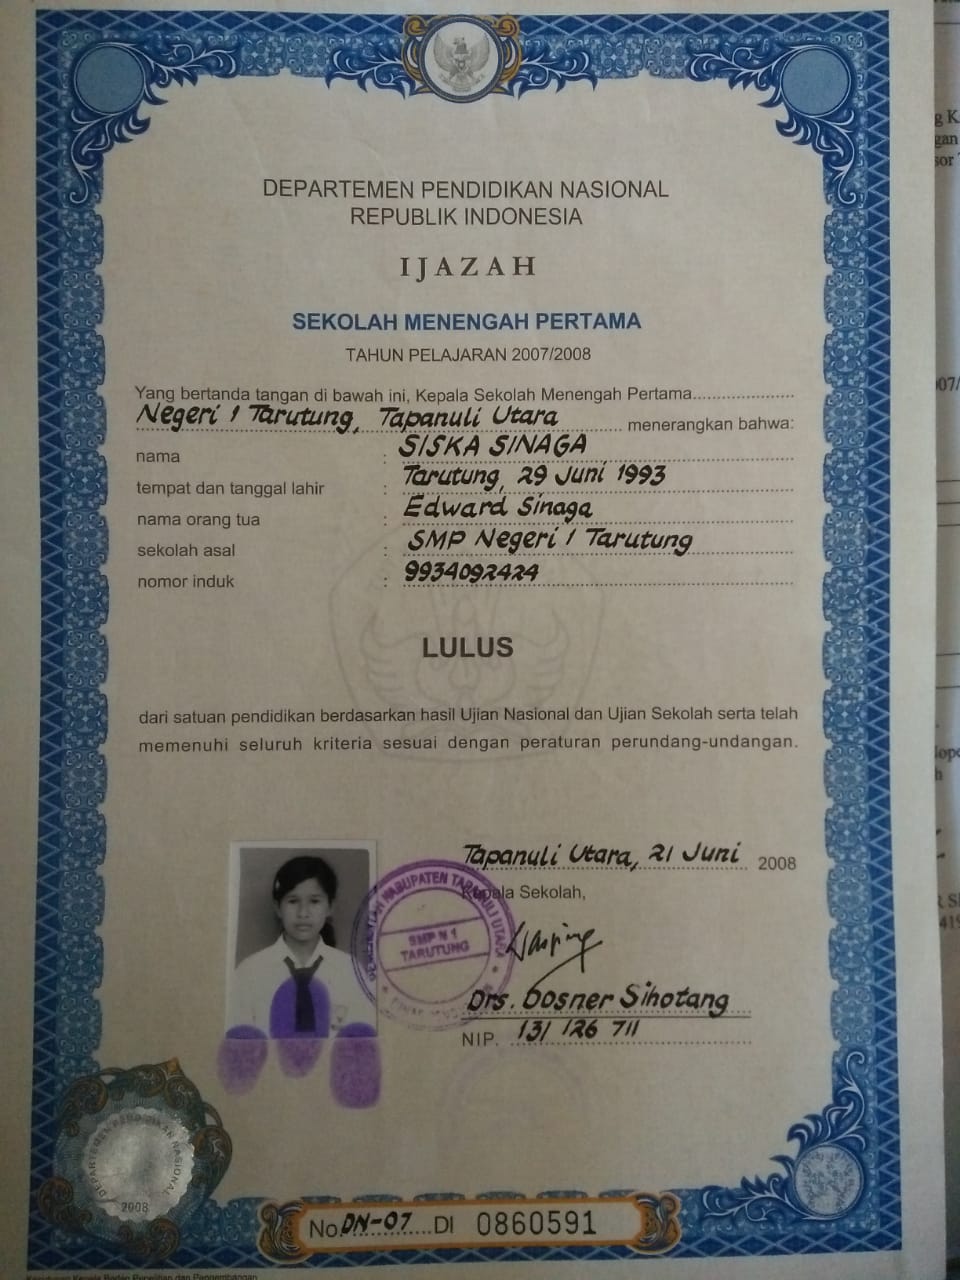 DEPARTEMEN PENDIDIKAN NASIONAL
REPUBLIK INDONESIA
IJAZAH
SEKOLAH MENENGAH PERTAMA
TAHUN PELAJARAN 2007/2008
Yang bertanda tangan di bawah ini, Kepala Sekolah Menengah Pertama
Negeri 1 Tarutung, Tapanuli Utara menerangkan bahwa:
nama : SISKA SINAGA
tempat dan tanggal lahir : Tarutung, 29 Juni 1993
nama orang tua : Edward Sinaga
sekolah asal : SMP Negeri 1 Tarutung
nomor induk : 9934092424
LULUS
dari satuan pendidikan berdasarkan hasil Ujian Nasional dan Ujian Sekolah serta telah
memenuhi seluruh kriteria sesuai dengan peraturan perundang-undangan.
Tapanuli Utara, 21 Juni 2008
Kepala Sekolah,
KABUPATEN TAPANULI UTARA
SMP N 1
TARUTUNG
Drs. Bosner Sihotang
NIP. 131 126 711
DEPARTEMEN PENDIDIKAN NASIONAL
2008
No. DN-07 DI 0860591